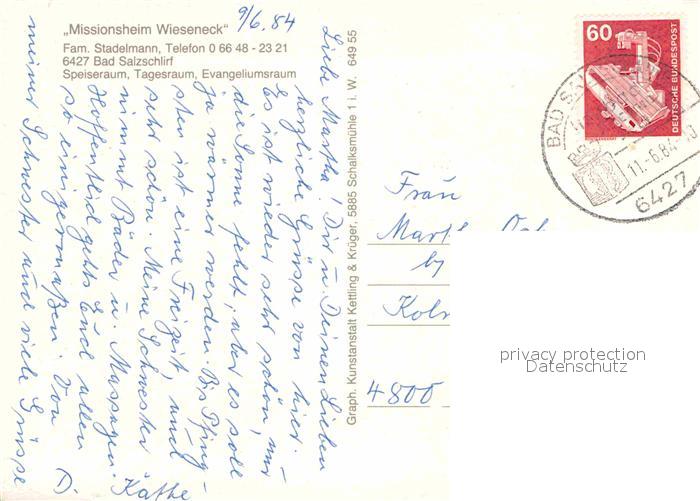 „Missionsheim Wieseneck"
Fam. Stadelmann, Telefon 0 66 48 - 23 21
6427 Bad Salzschlirf
Speiseraum, Tagesraum, Evangeliumsraum
9/6. 84
Liebe Martha! Dir u. Deinen Lieben
herzliche Grüsse von hier.
Es ist wieder sehr schön, nur
die Sonne fehlt, aber es soll
ja wärmer werden. Bis Pfing-
sten ist eine Freizeit, und
sehr schön. Meine Schwester
nimmt Bäder u. Massagen.
Hoffentlich gehts Euch allen
so einigermaßen. Von
meiner Schwester und viele Grüsse
D. Käthe
Graph. Kunstanstalt Kettling & Krüger, 5885 Schalksmühle 1 i. W. 649 55
60
DEUTSCHE BUNDESPOST
BAD
11.-6.84
6427
Frau
by
4800
privacy protection
Datenschutz